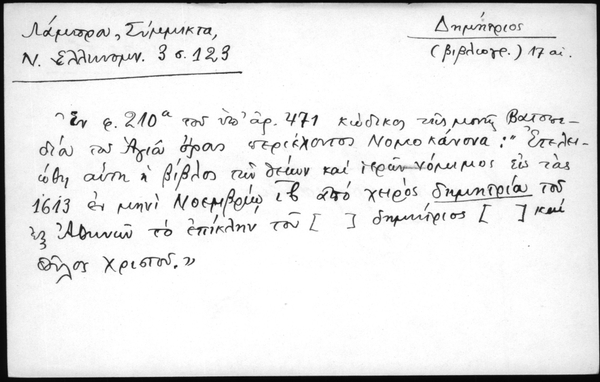 Λάμπρου, Σύμμικτα,
Ν. Ελληνομν. 3 σ. 123
Δημήτριος
(βιβλιογρ.) 17 αι.
Ἐν φ. 210α τοῦ ὑπ' ἀρ. 471 κώδικος τῆς μονῆς Βατοπε-
δίου τοῦ Ἁγίου Ὄρους περιέχοντος Νομοκάνονα: "Ἐτελει-
ώθη αὕτη ἡ βίβλος τῶν θείων καὶ ἱερῶν νόμιμος εἰς τὰς
1613 ἐν μηνὶ Νοεμβρίῳ ιβ ἀπὸ χειρὸς δημητρίου τοῦ
ἐξ Ἀθηνῶν τὸ ἐπίκλην τοῦ [ ] δημήτριος [ ] καὶ
θύλος Χριστοῦ."